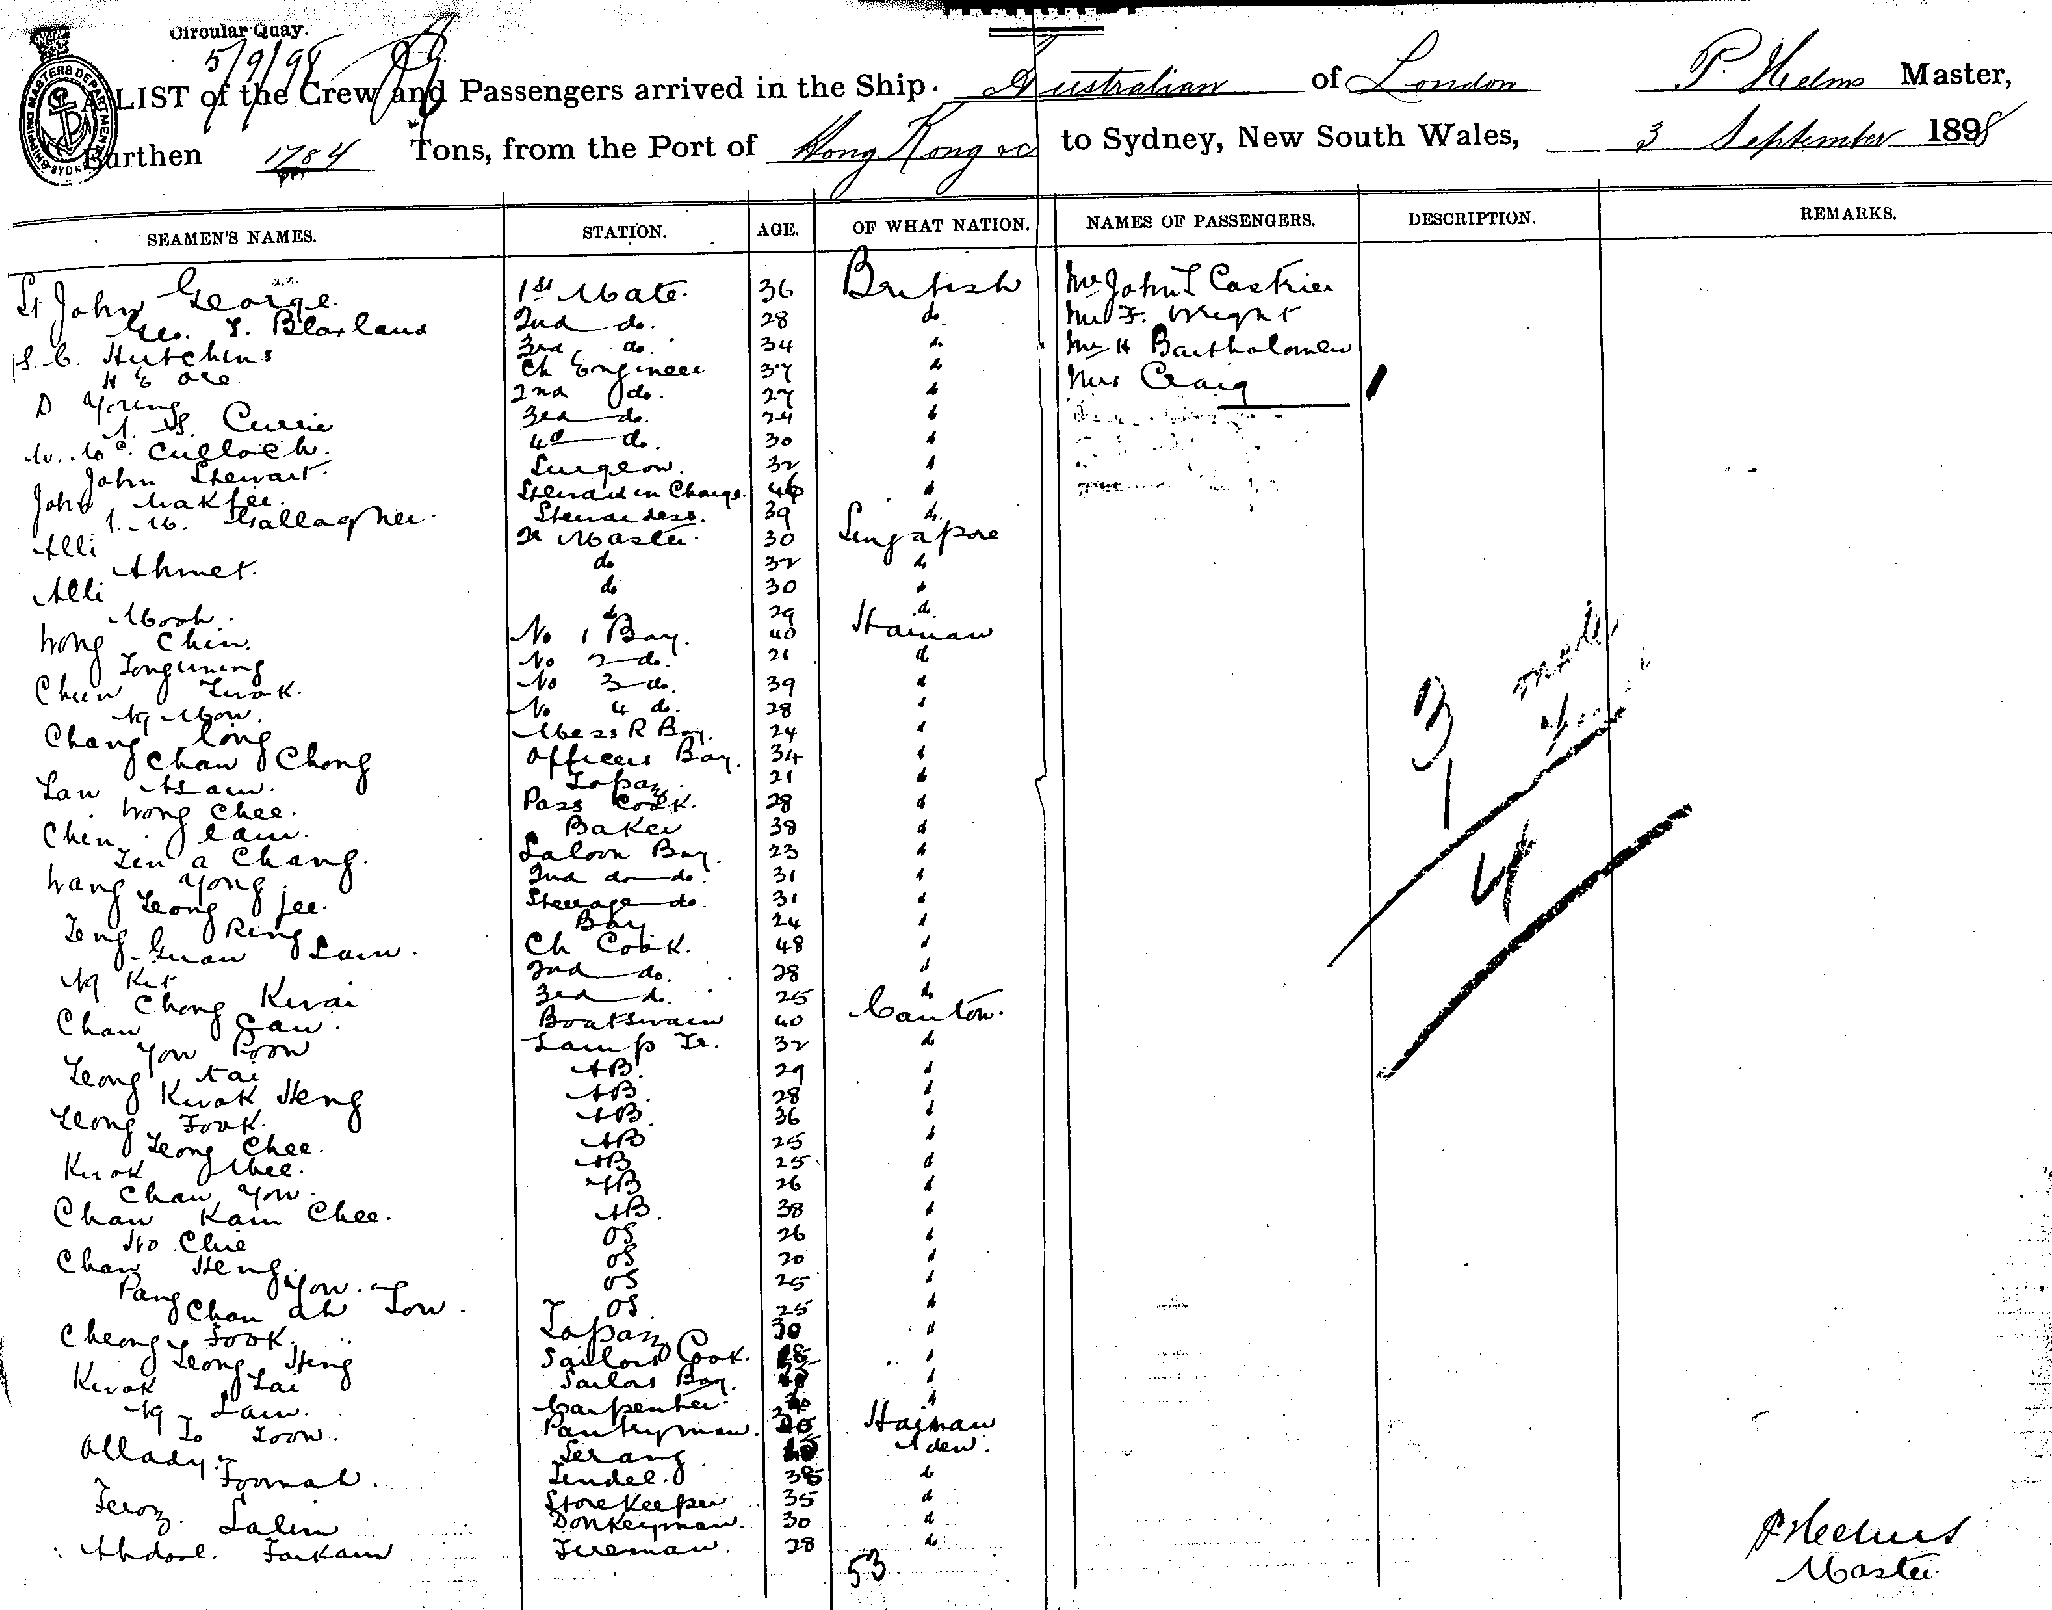 Circular Quay.
5/9/98
A LIST of the Crew and Passengers arrived in the Ship. Australian of London P. Helms Master,
Burthen 1784 Tons, from the Port of Hong Kong &c to Sydney, New South Wales, 3 September 1898
SEAMEN'S NAMES. STATION. AGE. OF WHAT NATION. NAMES OF PASSENGERS. DESCRIPTION. REMARKS.
St John George. 1st Mate. 36 British Mr John T Castries
Geo. T. Blaxland 2nd do. 28 do Mr F. Wright
S. C. Hutchins 3rd do. 34 " Mr H Bartholomew
H E Ch Engineer 37 " Mrs Craig 1
D Young 2nd do. 27 "
Currie 3rd do. 24 "
W. McCulloch. 4th do. 30 "
John Stewart. Surgeon. 32 "
John Makfee. Steward in Charge 46 "
Gallagher. Stewardess. 39 do.
Alli Qr Master. 30 Singapore
Ahmet. do 32 do
Alli do 30 "
Mooh. do 29 do.
Wong Chin. No 1 Boy. 40 Hainan
Tonguning No 2 do. 21 do
Chun Luok. No 3 do. 39 "
Ng Mow. No 4 do. 28 "
Chang Cong Mess R Boy. 24 "
Chaw Chong Officers Boy. 34 "
Lan Asam. Topaz 21 "
Wong Chee. Pass Cook. 28 "
Chin Cam. Baker 38 "
Len a Chang. Saloon Boy. 23 "
Wang Yong 2nd do do. 31 "
Leong Jee. Steerage do. 31 "
Leng Ring Boy 24 "
Guan Lam. Ch Cook. 48 "
Ng Kit 2nd do. 28 "
Chong Kwai 3rd do. 25 do
Chan Gan. Boatswain 40 Canton.
Yow Poon Lamp Tr. 32 do
Leong Tai AB. 29 "
Kwok Heng AB. 28 "
Leong Fook. AB. 36 "
Leong Chee. AB 25 "
Kwok Mee. AB 25 "
Chan Yow. AB 26 "
Chan Kam Chee. AB. 38 "
Ho Chie OS 26 "
Chan Heng OS 20 "
Pang Yow. OS 25 "
Chan ah Low. OS 25 "
Cheong Fook. Topaz 30 "
Leong Heng Sailors Cook. "
Kwok Lai Sailors Boy. "
Ng Lam. Carpenter. "
Lo Loon. Pantryman. Hainan
Allady Serang Aden.
Foomah. Tendel. 38 do
Feroz. Storekeeper 35 "
Salim Donkeyman. 30 "
Abdool. Farkam Fireman. 28 do
53
3 male
1
4
P Helms
Master